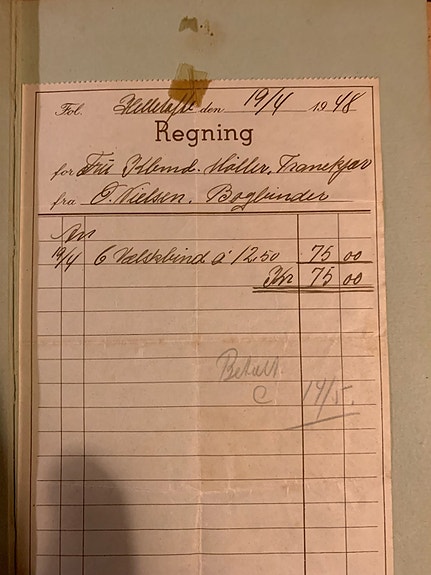 Fol. Helletofte den 19/4 1948
Regning
for Fru Kbmd. Møller, Tranekjær
fra O. Nielsen. Bogbinder
19/4 6 Vælskbind á 12,50 75 00
Kr 75 00
Betalt.
C 14/5.